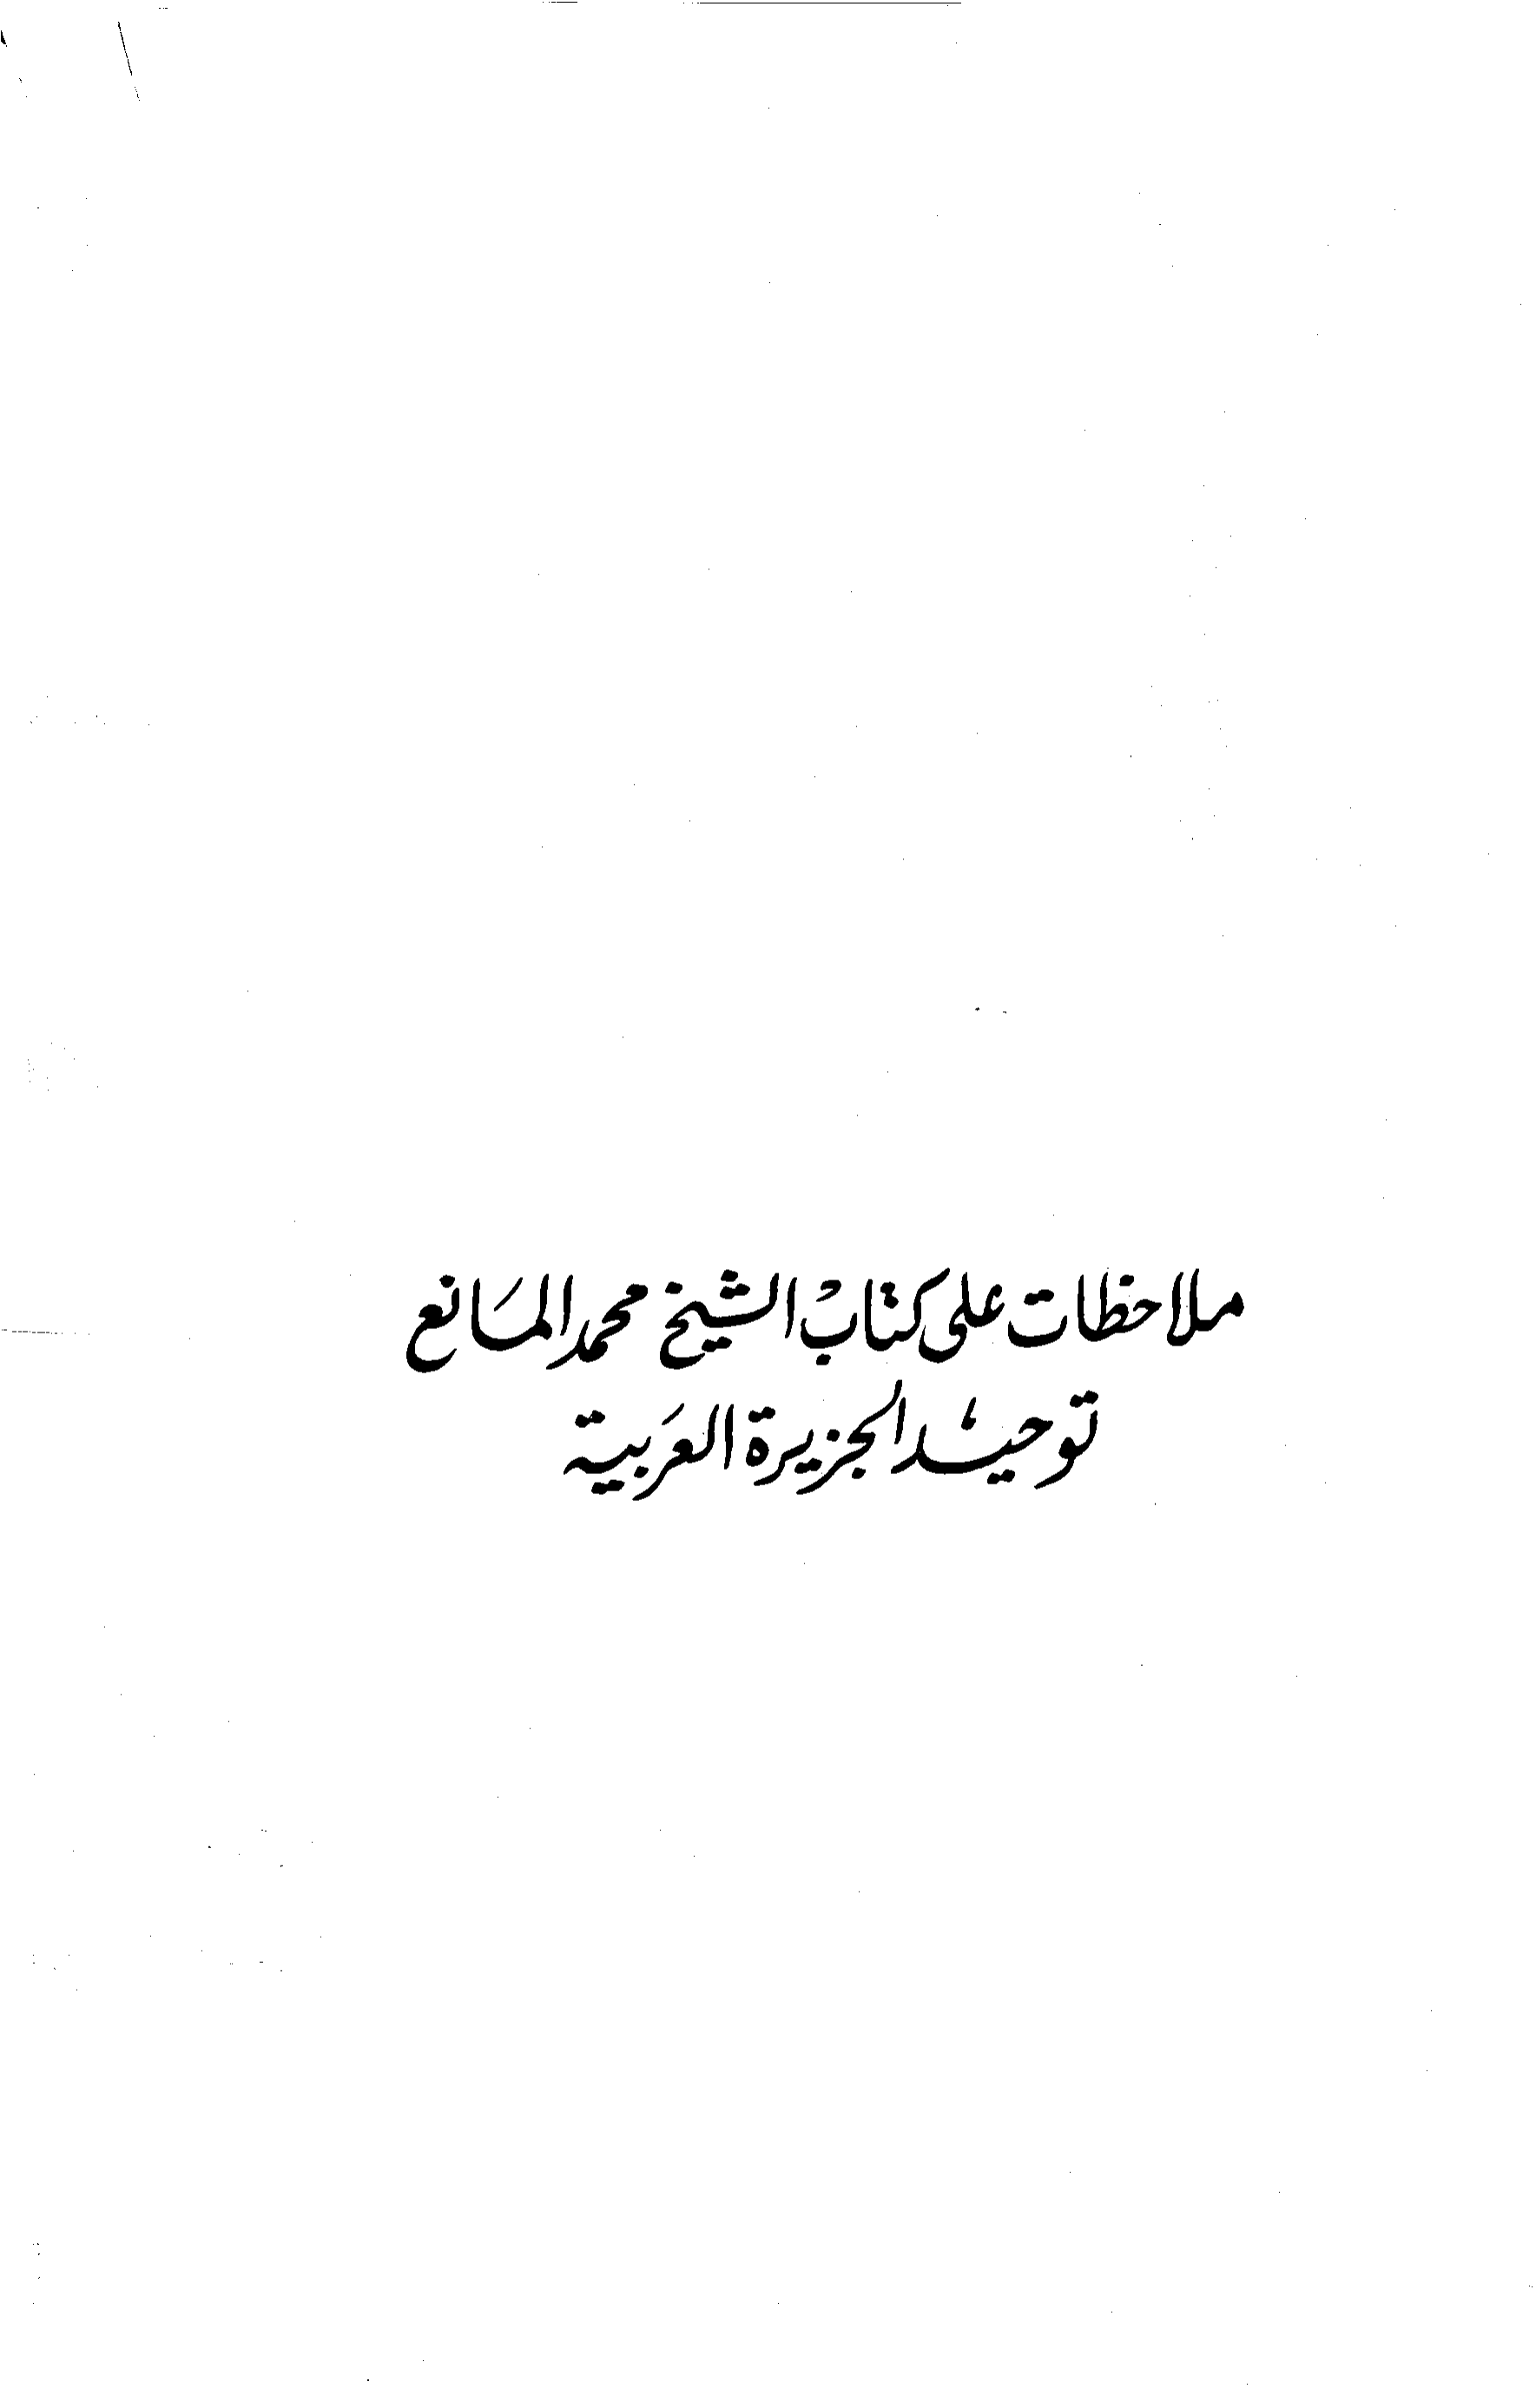 ملاحظات على كتاب الشيخ محمد المانع
توحيد الجزيرة العربية